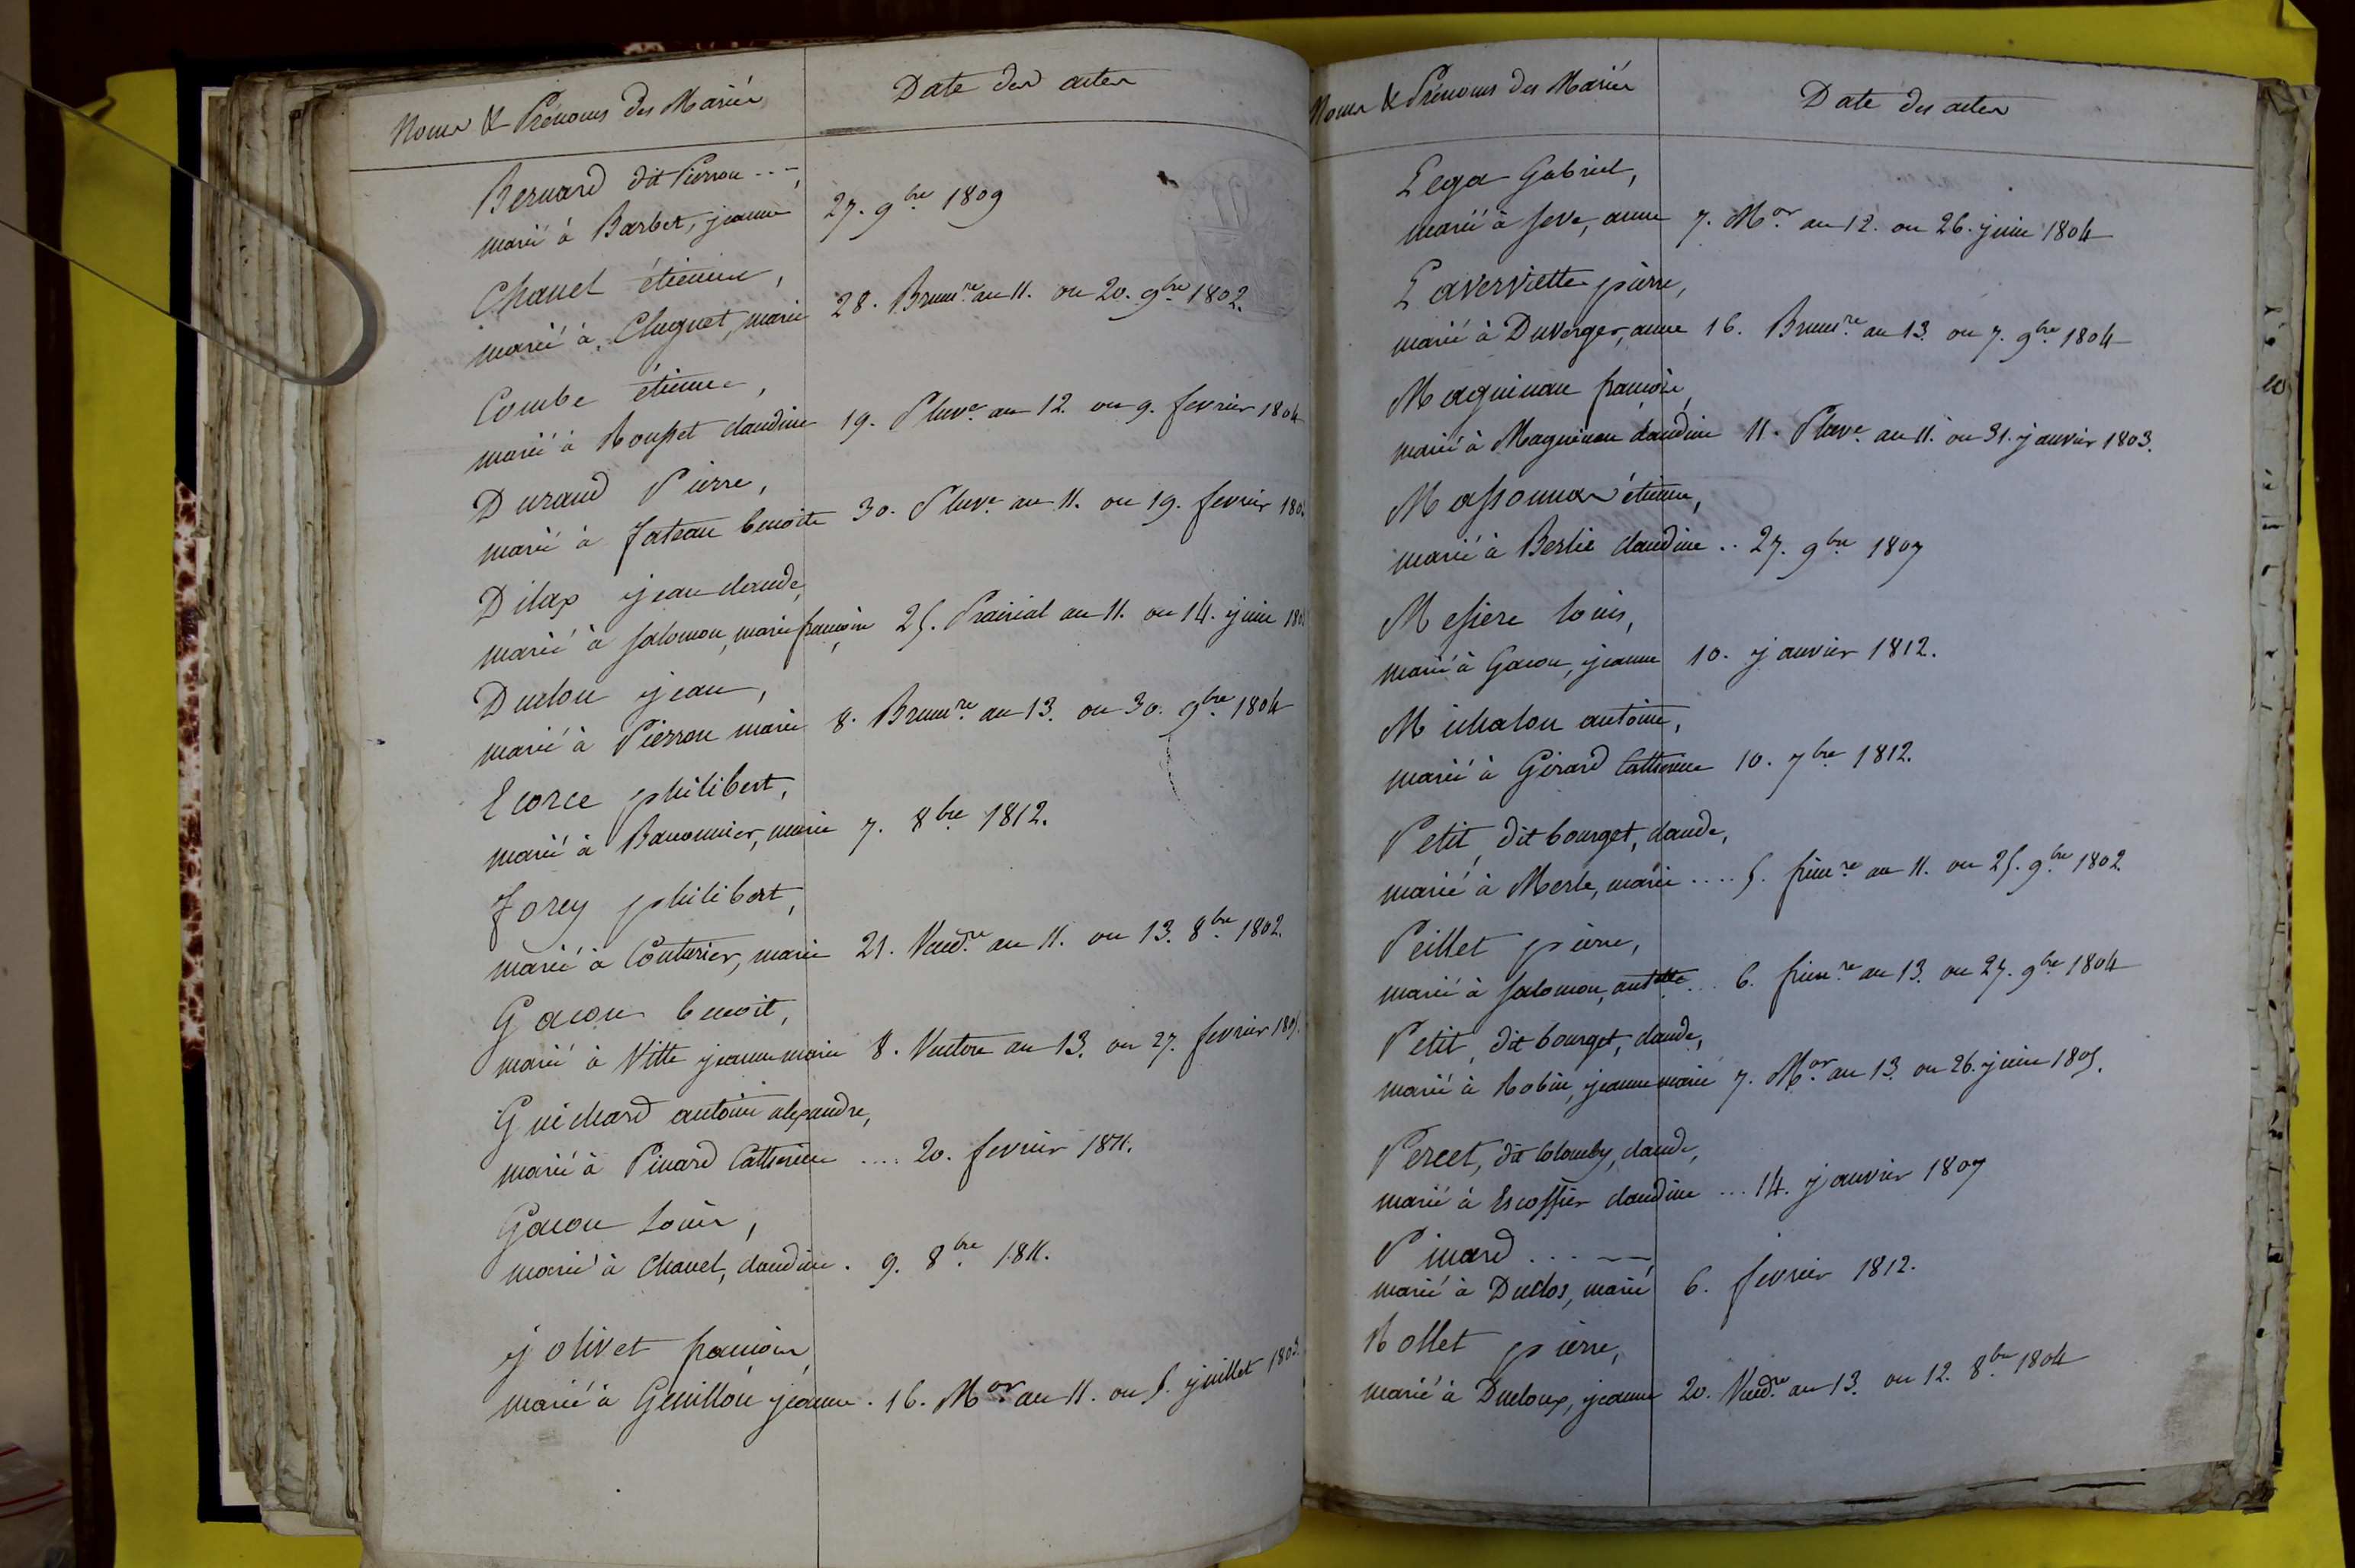 Noms & Prénoms des Mariés
Date des actes
Bernard dit Pierron ...,
marié à Barbet, jeanne 27. 9bre 1809
Chanel étienne,
marié à Cluguet, marie 28. Brumre an 11. ou 20. 9bre 1802.
Combe étienne,
marié à Rousset claudine 19. Pluve an 12. ou 9. fevrier 1804
Durand Pierre,
marié à benoite 30. Pluve an 11. ou 19. fevrier
Dilax jean claude,
marié à salomon, marie françoise 25. Prairial an 11. ou 14. juin
Duclou jean,
marié à Pierron marie 8. Brumre an 13. ou 30. 9bre 1804
Ecorce philibert,
marié à marie 7. 8bre 1812.
forey philibert,
marié à Couturier, marie 21. Vendre an 11. ou 13. 8bre 1802.
Gacon benoit,
marié à Vitte jeanne marie 8. Ventose an 13. ou 27. fevrier 1805.
Guichard antoine alexandre,
marié à Pinard Catherine .... 20. fevrier 1811.
Gacon Louis,
marié à Chanel, claudine . 9. 8bre 1811.
jolivet françois,
marié à Genillon jeanne . 16. Mor an 11. ou 5. juillet 1803.
Noms & Prénoms des Mariés
Date des actes
Lega Gabriel,
marié à seve, anne 7. Mor an 12. ou 26. juin 1804
Laverviette pierre,
marié à Duverger, anne 16. Brumre an 13. ou 7. 9bre 1804
Maguinau françois,
marié à Maguinau claudine 11. Pluve an 11. ou 31. janvier 1803.
Massonnar étienne,
marié à Berlie claudine .. 27. 9bre 1807
Messiere Louis,
marié à Gacon, jeanne 10. janvier 1812.
Michalon antoine,
marié à Girard Catherine 10. 7bre 1812.
Petit, dit bourget, claude,
marié à Merle, marie .... 5. frimre an 11. ou 25. 9bre 1802.
Peillet pierre,
marié à salomon, antoinette ... 6. frimre an 13. ou 27. 9bre 1804
Petit, dit bourget, claude,
marié à Robin, jeanne marie 7. Mor an 13. ou 26. juin 1805.
Percet, dit Colomby, claude,
marié à Escoffier claudine ... 14. janvier 1807
Pinard ...,
marié à Duclos, marie 6. fevrier 1812.
Rollet pierre,
marié à Ducloux, jeanne 20. Vendre an 13. ou 12. 8bre 1804